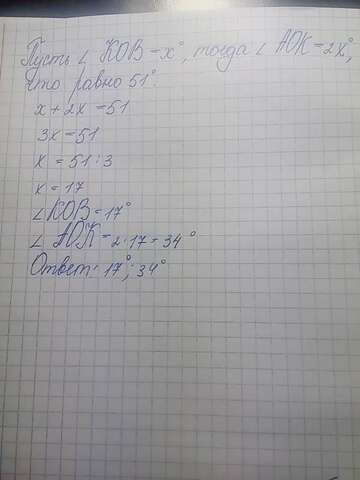 Пусть ∠ КОВ = x°, тогда ∠ АОК = 2x°,
что равно 51°.
x + 2x = 51
3x = 51
x = 51 : 3
x = 17
∠КОВ = 17°
∠ АОК = 2·17 = 34°
Ответ: 17°; 34°